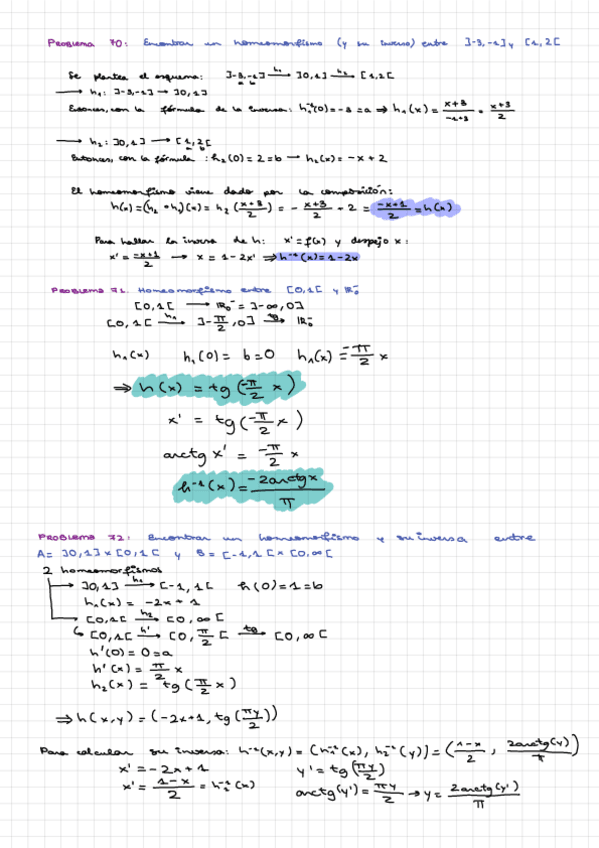 Problema 70: Encontrar un homeomorfismo (y su inverso) entre ]-3,-1] y [1,2[
Se plantea el esquema: ]-3,-1] —h₁→ ]0,1] —h₂→ [1,2[
→ h₁: ]-3,-1] → ]0,1]
Entonces, con la fórmula de la inversa: h₁⁻¹(0)=-3=a ⇒ h₁(x) = (x+3)/(-1+3) = (x+3)/2
→ h₂: ]0,1] → [1,2[
Entonces, con la fórmula: h₂(0)=2=b → h₂(x)=-x+2
El homeomorfismo viene dado por la composición:
h(x)=(h₂∘h₁)(x)=h₂((x+3)/2) = -(x+3)/2 + 2 = (-x+1)/2 = h(x)
Para hallar la inversa de h: x'=f(x) y despejo x:
x' = (-x+1)/2 → x = 1-2x' ⇒ h⁻¹(x)=1-2x
Problema 71. Homeomorfismo entre [0,1[ y ℝ₀⁻
[0,1[ → ℝ₀⁻ = ]-∞,0]
[0,1[ —h₁→ ]-π/2,0] —tg→ ℝ₀⁻
h₁(x) h₁(0)= b=0 h₁(x) = -π/2 x
⇒ h(x) = tg(-π/2 x)
x' = tg(-π/2 x)
arctg x' = -π/2 x
h⁻¹(x) = -2arctgx/π
Problema 72: Encontrar un homeomorfismo y su inversa entre
A= ]0,1]×[0,1[ y B= [-1,1[×[0,∞[
2 homeomorfismos
→ ]0,1] —h₁→ [-1,1[ h(0)=1=b
h₁(x) = -2x+1
→ [0,1[ —h₂→ [0,∞[
↳ [0,1[ —h'→ [0,π/2[ —tg→ [0,∞[
h'(0)=0=a
h'(x)= π/2 x
h₂(x)= tg(π/2 x)
⇒ h(x,y)=(-2x+1, tg(πy/2))
Para calcular su inversa: h⁻¹(x,y) = (h₁⁻¹(x), h₂⁻¹(y)) = ((1-x)/2, 2arctg(y)/π)
x' = -2x+1 y' = tg(πy/2)
x' = (1-x)/2 = h₁⁻¹(x) arctg(y') = πy/2 → y = 2arctg(y')/π